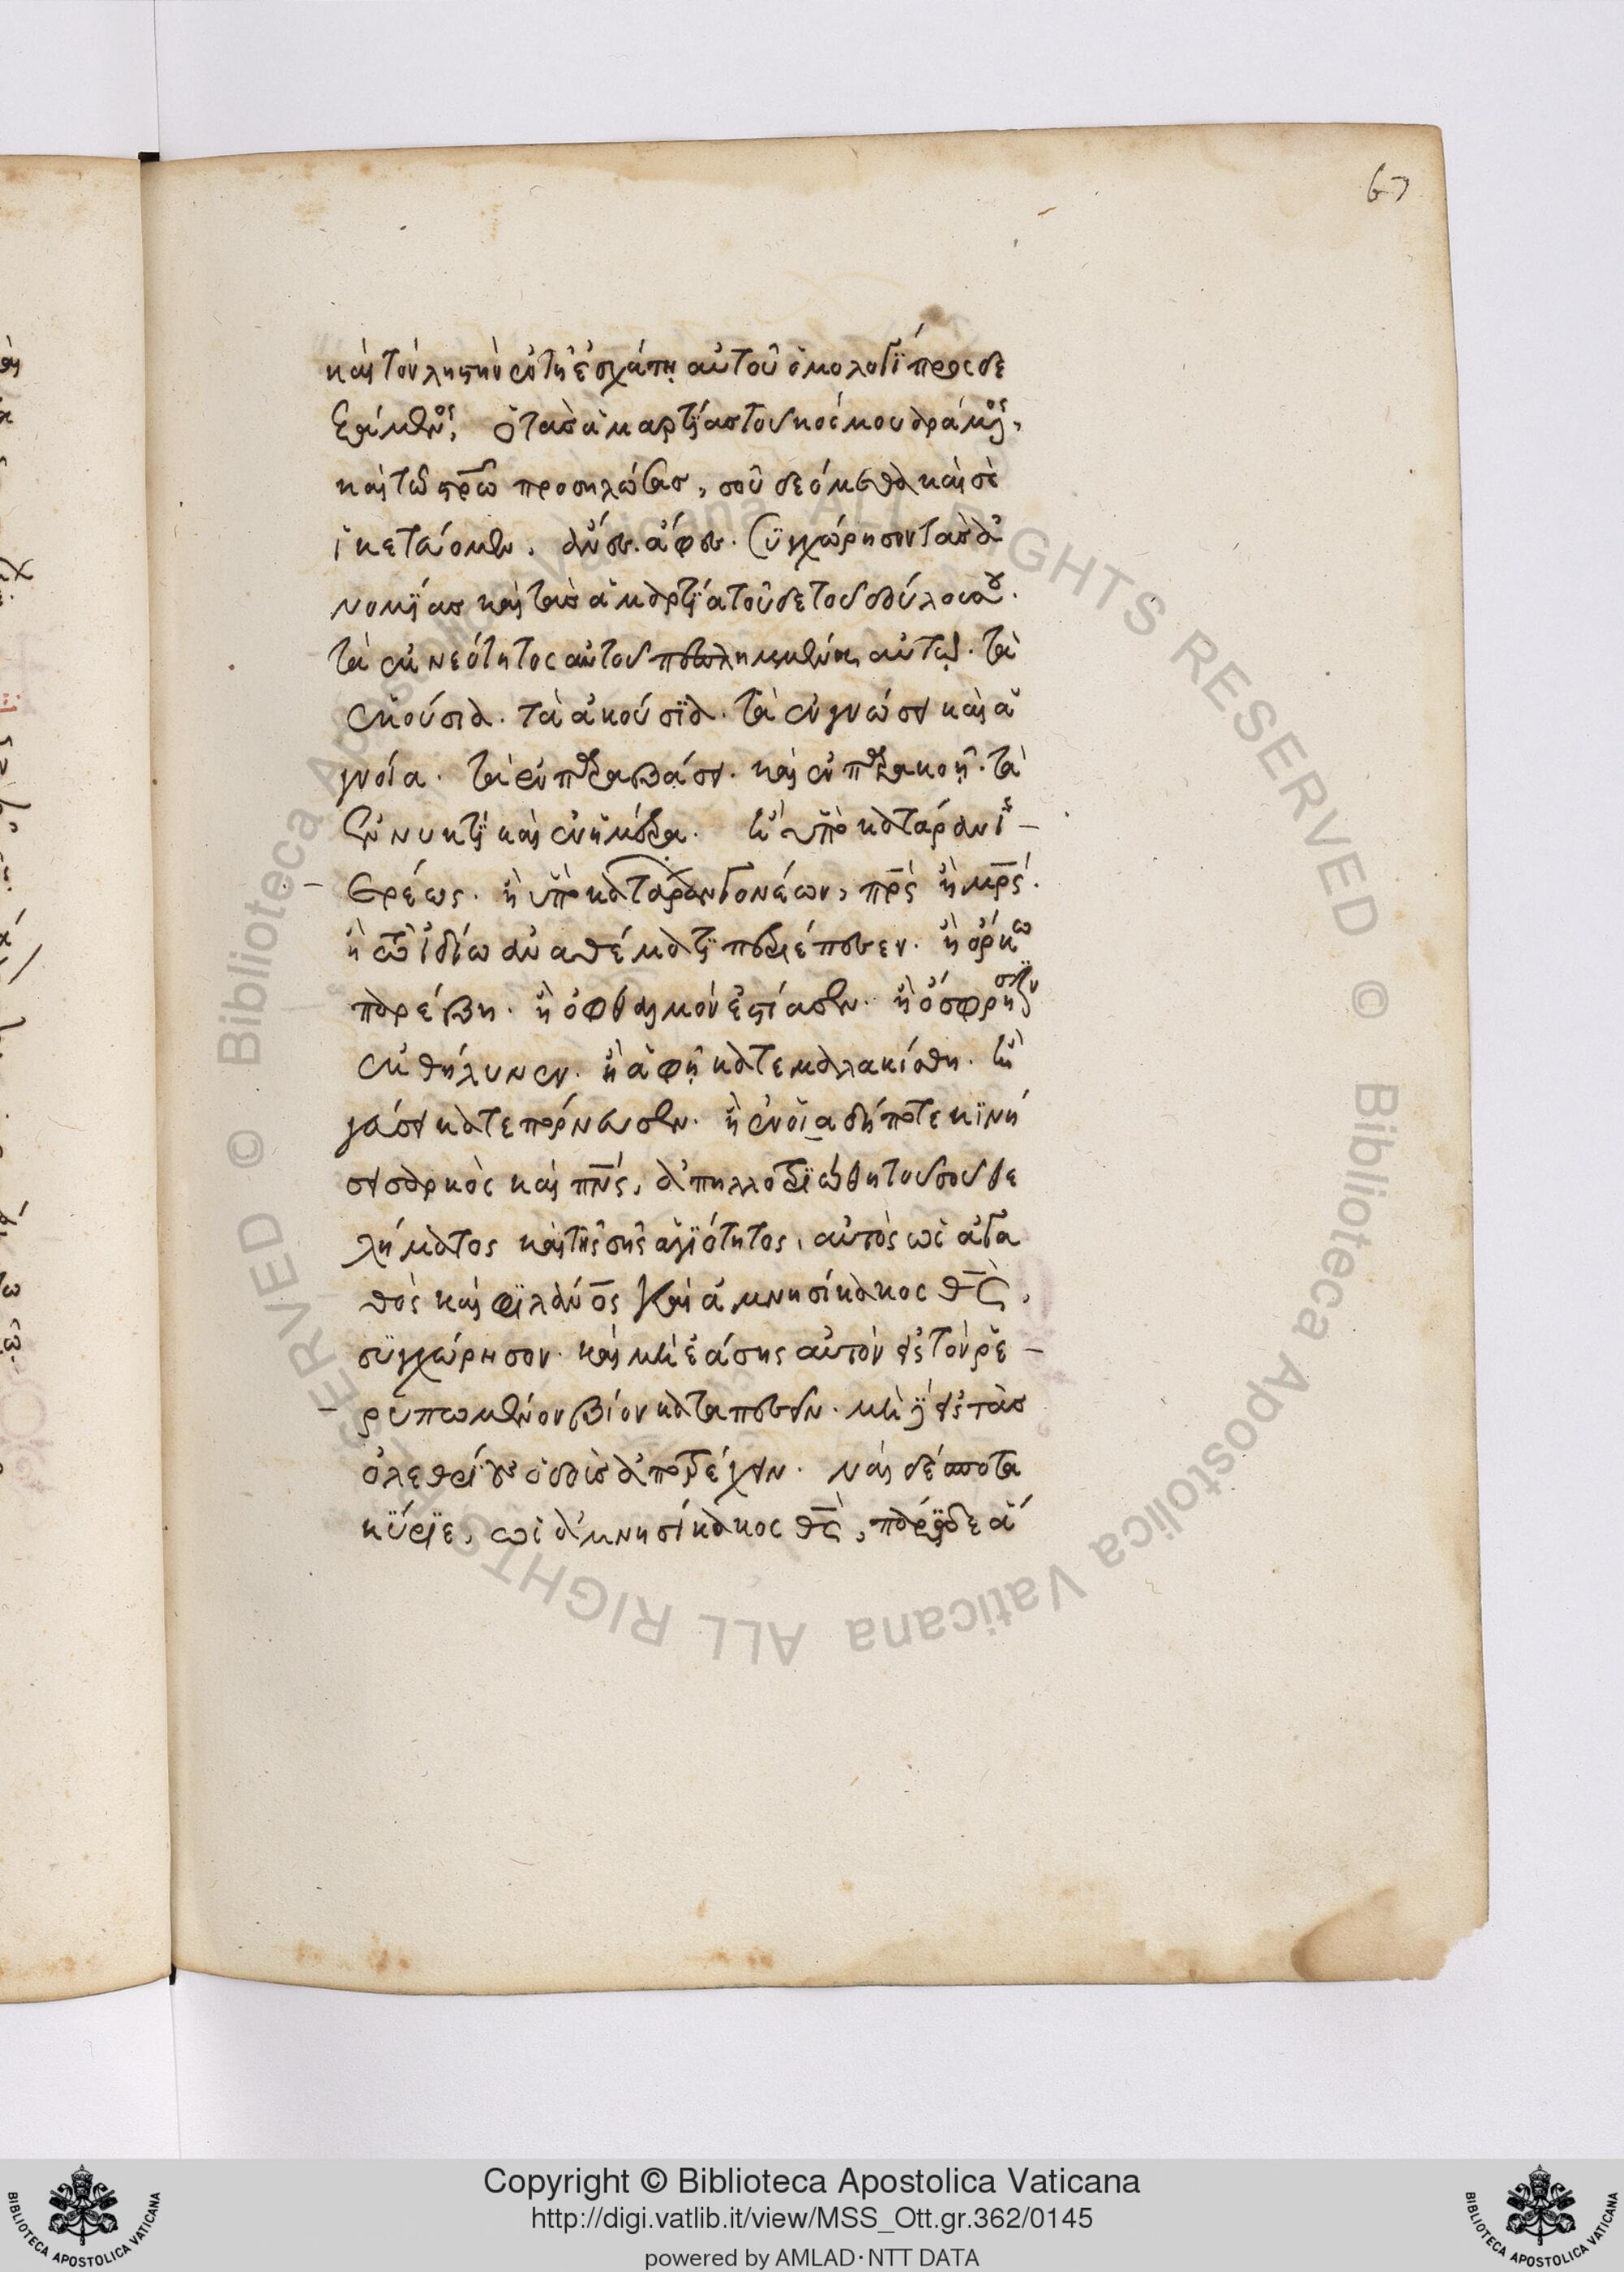 67
καὶ τὸν ληστὴν ἐν τῇ ἐσχάτῃ αὐτοῦ ὁμολογΐα προσδε
ξάμενος, ὁ τὰς ἁμαρτΐας τοῦ κόσμου ἀράμενος,
καὶ τῷ στρω προσηλώσας, σοῦ δεόμεθα καὶ σὲ
ἱκετεύομεν. ἄνες. ἄφες. συγχώρησον τὰς ἀ
νομΐας καὶ τὰς ἁμαρτΐας τοῦδε τοῦ δούλου σου.
τὰ ἐκ νεότητος αὐτοῦ πεπλημμελημένα αὐτῷ. τὰ
ἑκούσια. τὰ ἀκούσϊα. τὰ ἐν γνώσει καὶ ἀ
γνοία. τὰ ἐν παραβάσει. καὶ ἐν παρακοῇ. τὰ
ἐν νυκτΐ καὶ ἐν ἡμέρα. ἢ ὑπὸ κατάραν ἱ-
ερέως. ἢ ὑπὸ κατάραν γονέων, πρς ἢ μρς.
ἢ τῶ ἰδίω ἀναθέματϊ περιέπεσεν. ἢ ὅρκω
παρέβη. ἢ ὀφθαλμὸν ἐστίασεν. ἢ ὄσφρησιν
ἐκθήλυνεν. ἢ ἁφῇ κατεμαλακίσθη. ἢ
γεύσει κατεπόρνευσεν. ἢ ἐν οἵα δήποτε κϊνή
σει σαρκὸς καὶ πνς, ἀπηλλοτρϊώθη τοῦ σοῦ θε
λήματος καὶ τῆς σῆς ἁγϊότητος, αὐτὸς ὡς ἀγα
θὸς καὶ φϊλάνος καὶ ἀμνησίκακος θς,
συγχώρησον. καὶ μὴ ἐάσης αὐτὸν εἰς τὸν ῥε-
ρυπωμένον βίον καταπεσεῖν. μὴ δὲ εἰς τὰς
ὀλεθρίους ὁδοὺς ἀποτρέχειν. ναὶ δέσποτα
κύρϊε, ὡς ἀμνησίκακος θς, πάρϊδε ἅ
Copyright © Biblioteca Apostolica Vaticana
http://digi.vatlib.it/view/MSS_Ott.gr.362/0145
powered by AMLAD·NTT DATA